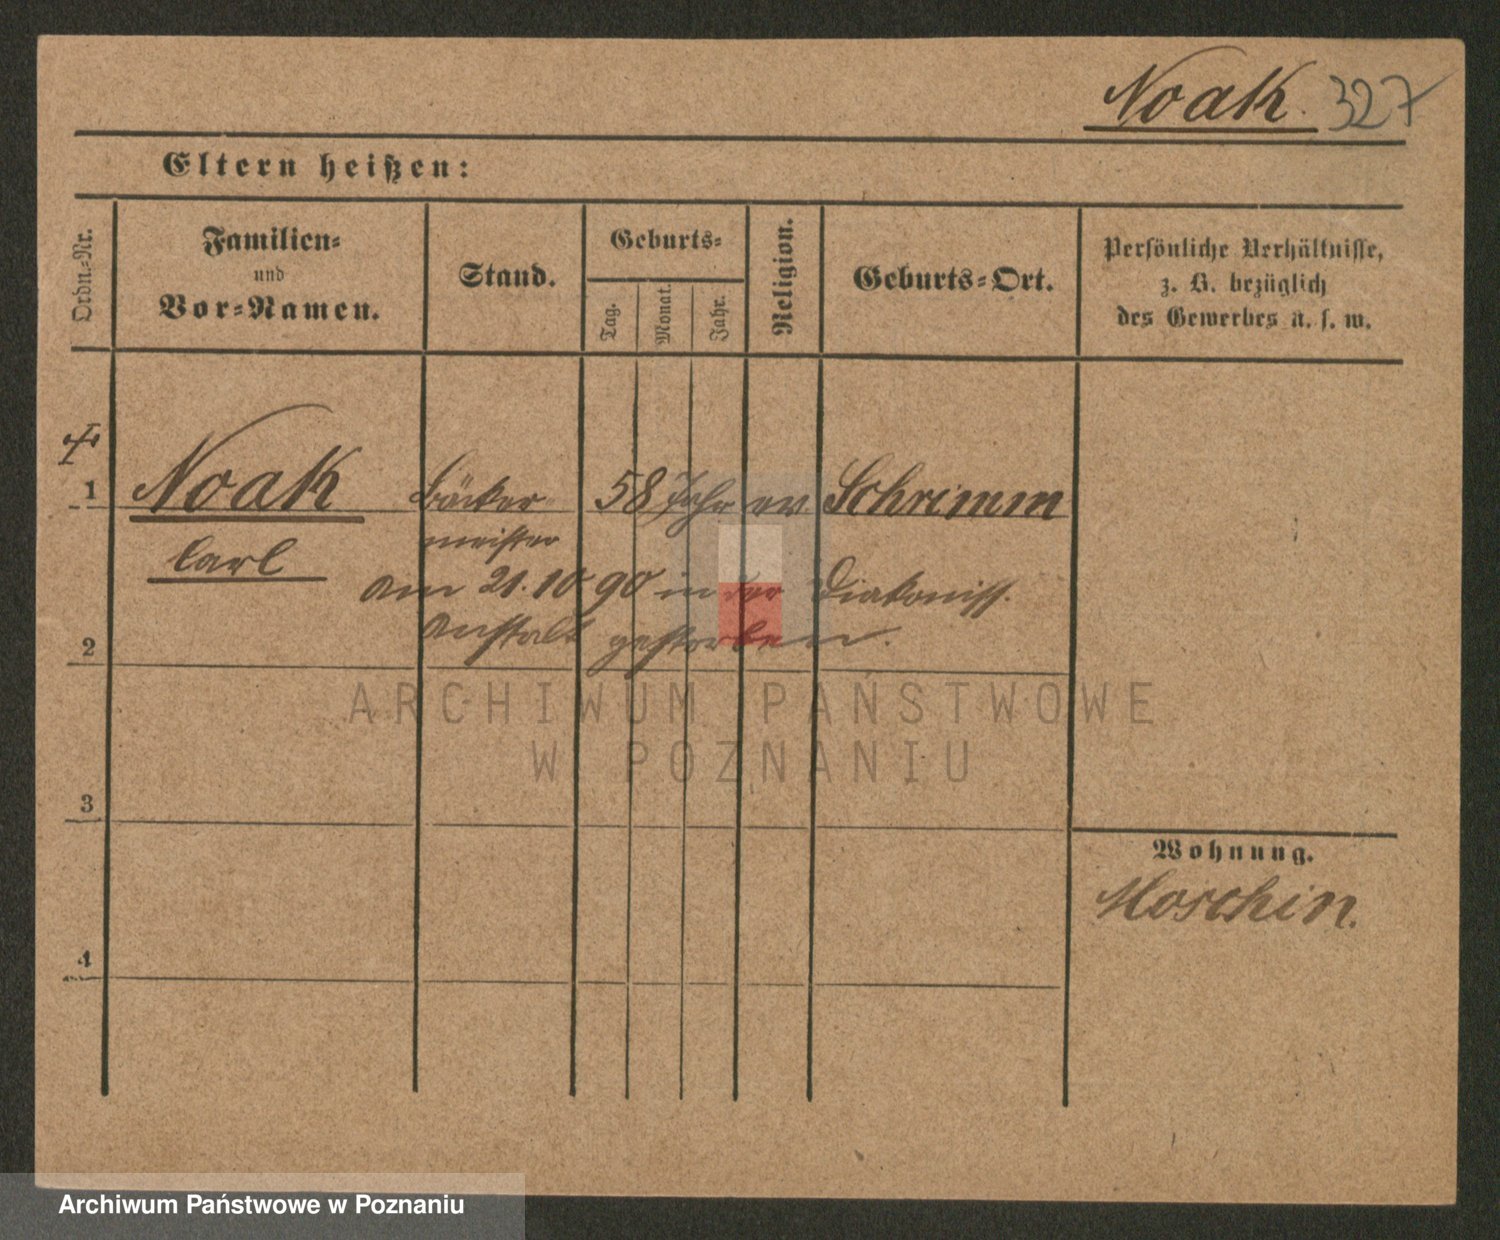 Noak. 327
Eltern heißen:
Ordn.-Nr.
Familien-
und
Vor-Namen.
Stand.
Geburts-
Tag.
Monat.
Jahr.
Religion.
Geburts-Ort.
Persönliche Verhältnisse,
z. B. bezüglich
des Gewerbes u. s. w.
1 Noak Bäcker 58 Jahr ev. Schrimm
meister
Carl
am 21.10 90 in der Diakoniss.
Anstalt gestorben.
2
ARCHIWUM PAŃSTWOWE
W POZNANIU
3
Wohnung.
Moschin.
4
Archiwum Państwowe w Poznaniu